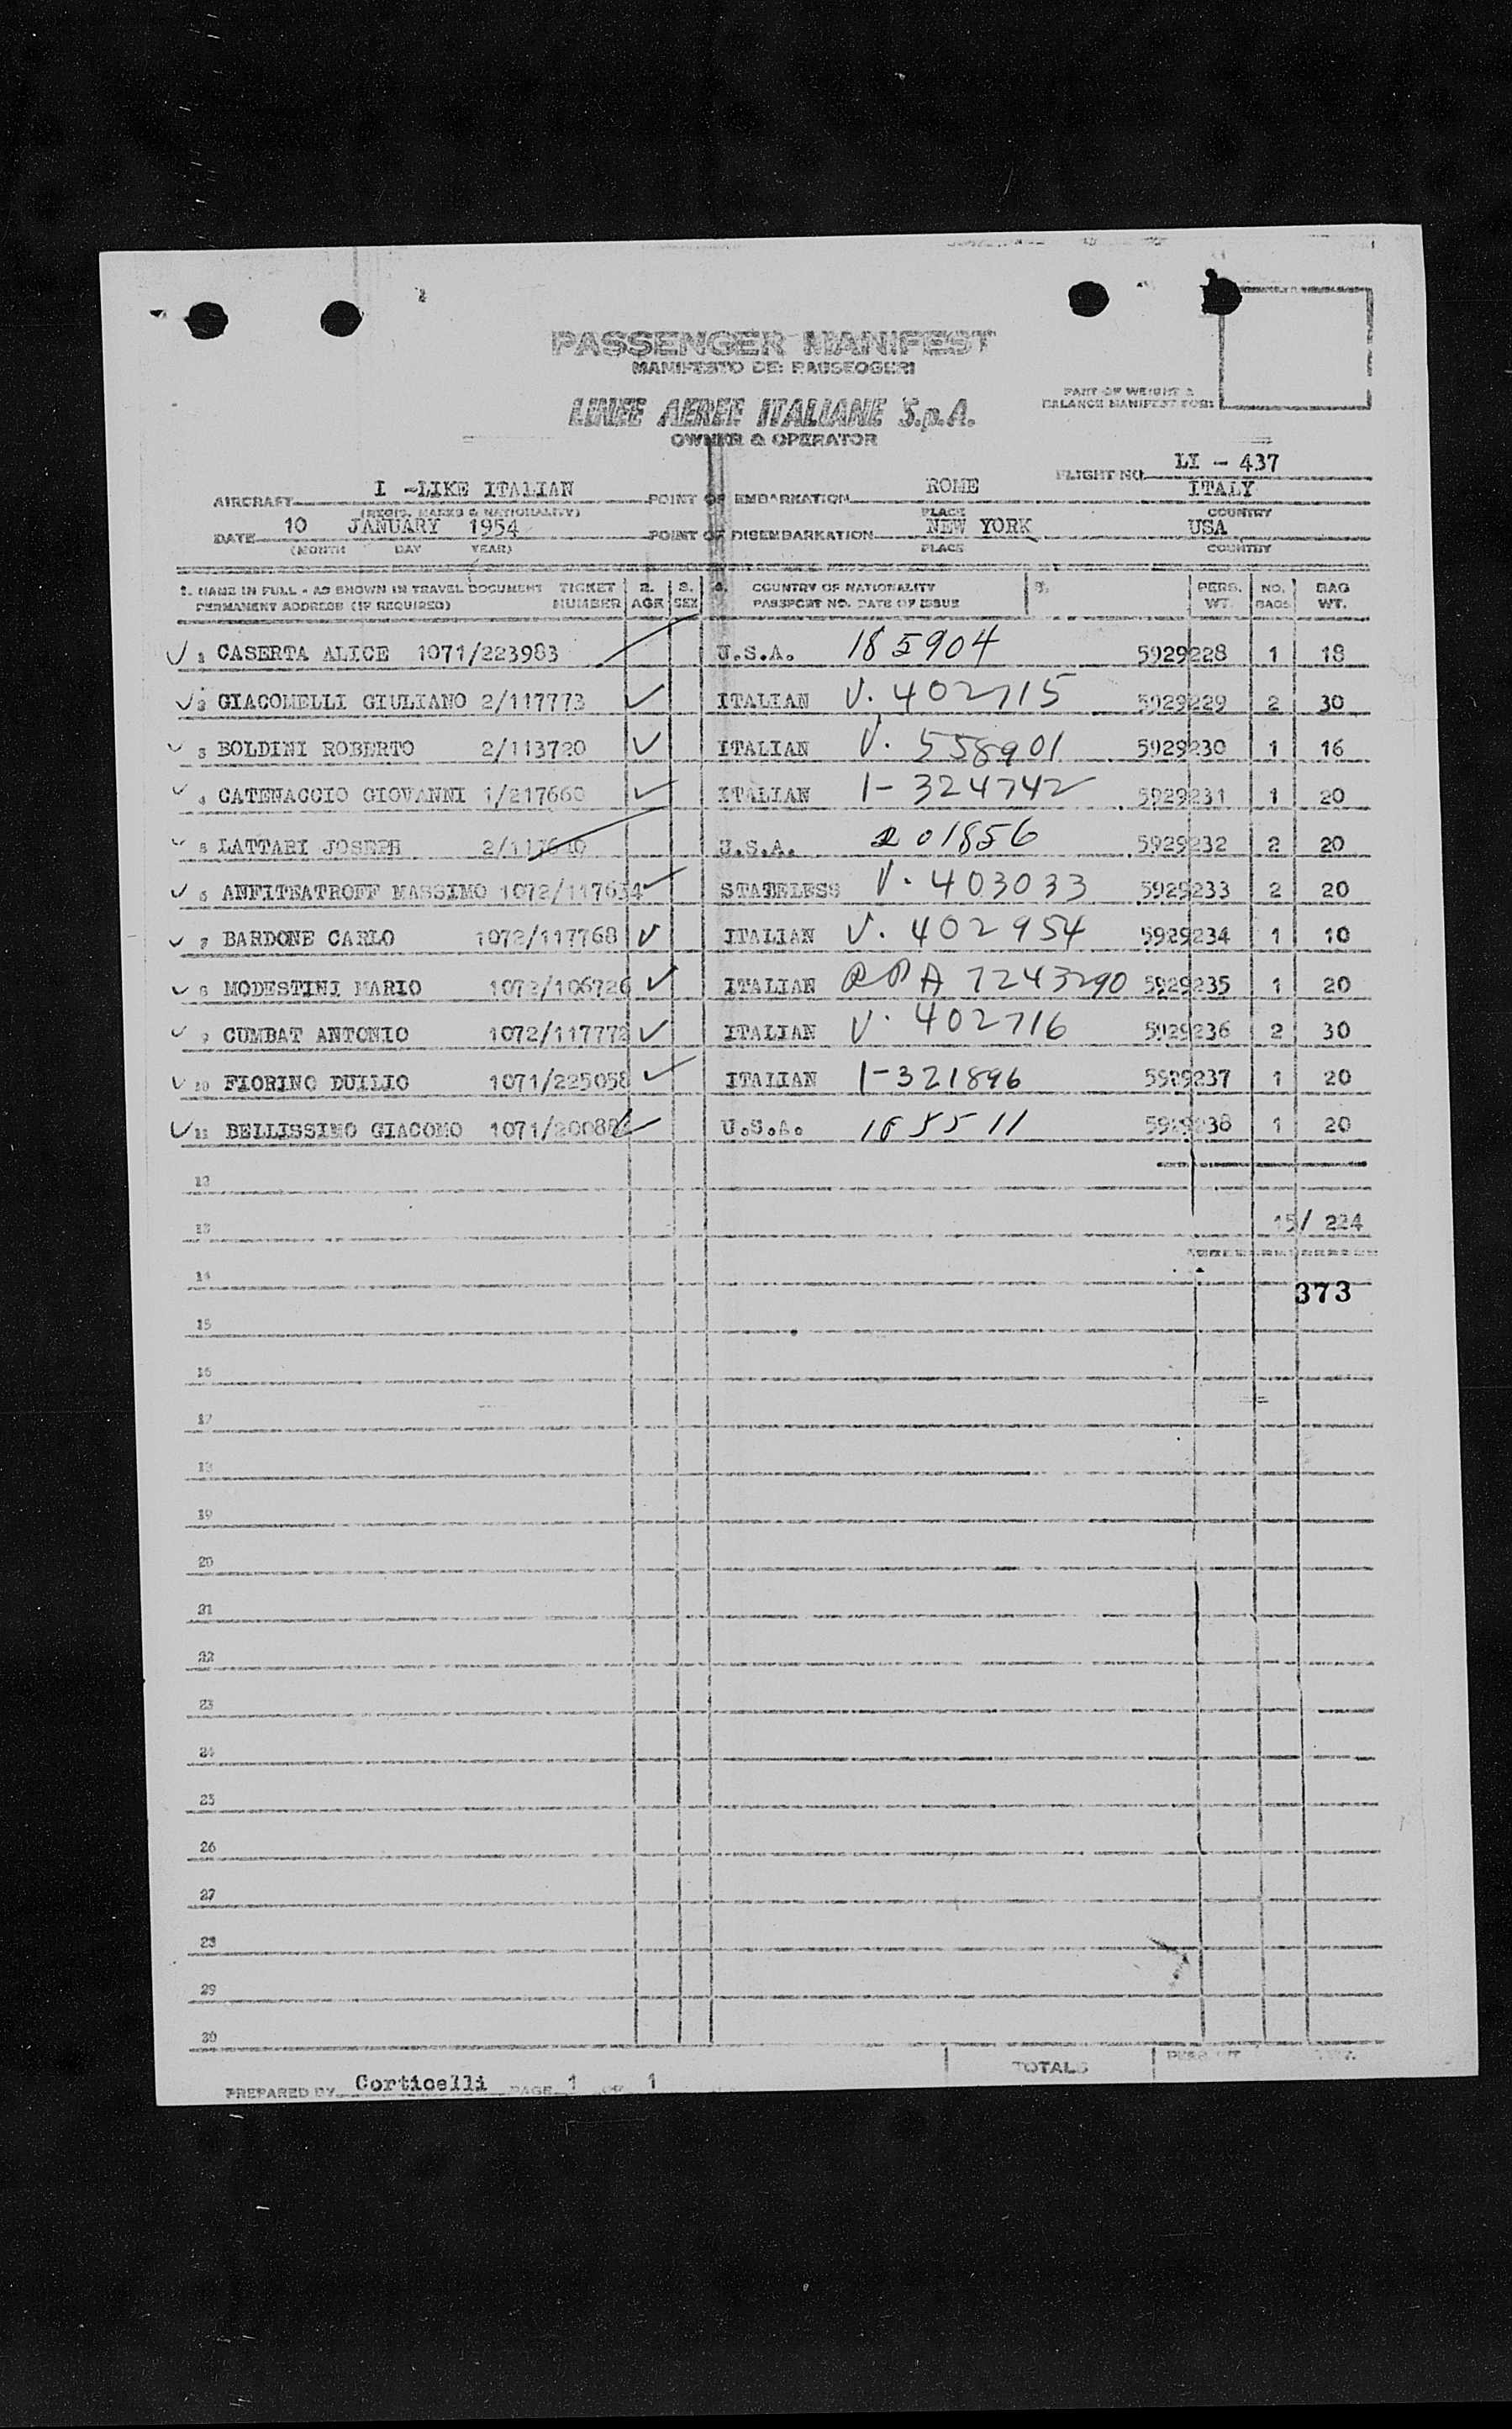 PASSENGER MANIFEST
MANIFESTO DEI PASSEGGERI
LINEE AEREE ITALIANE S.p.A.
OWNER & OPERATOR
PART OF WEIGHT &
BALANCE MANIFEST FORM
FLIGHT NO. LI - 437
AIRCRAFT I -LIKE ITALIAN POINT OF EMBARKATION ROME ITALY
(REGIS. MARKS & NATIONALITY) PLACE COUNTRY
DATE 10 JANUARY 1954 POINT OF DISEMBARKATION NEW YORK USA
(MONTH DAY YEAR) PLACE COUNTRY
1. NAME IN FULL - AS SHOWN IN TRAVEL DOCUMENT TICKET 2. 3. 4. COUNTRY OF NATIONALITY 5. PERS. NO. BAG
PERMANENT ADDRESS (IF REQUIRED) NUMBER AGE SEX PASSPORT NO. DATE OF ISSUE WT. BAGS WT.
1 CASERTA ALICE 1071/223983 U.S.A. 185904 5929228 1 18
2 GIACOMELLI GIULIANO 2/117773 ITALIAN V. 402715 5929229 2 30
3 BOLDINI ROBERTO 2/113720 ITALIAN V. 558901 5929230 1 16
4 CATENACCIO GIOVANNI 1/217660 ITALIAN I- 324742 5929231 1 20
5 LATTARI JOSEPH U.S.A. 201856 5929232 2 20
6 ANFITEATROFF MASSIMO 1072/117634 STATELESS V. 403033 5929233 2 20
7 BARDONE CARLO 1072/117768 ITALIAN V. 402954 5929234 1 10
8 MODESTINI MARIO 1072/106726 ITALIAN 7243290 5929235 1 20
9 CUMBAT ANTONIO 1072/117772 ITALIAN V. 402716 5929236 2 30
10 FIORINO DUILIO 1071/225058 ITALIAN I-321896 5929237 1 20
11 BELLISSIMO GIACOMO U.S.A. 5929238 1 20
12
13 15/ 224
14
373
15
16
17
18
19
20
21
22
23
24
25
26
27
28
29
30
TOTALS
PREPARED BY Corticelli PAGE 1 OF 1